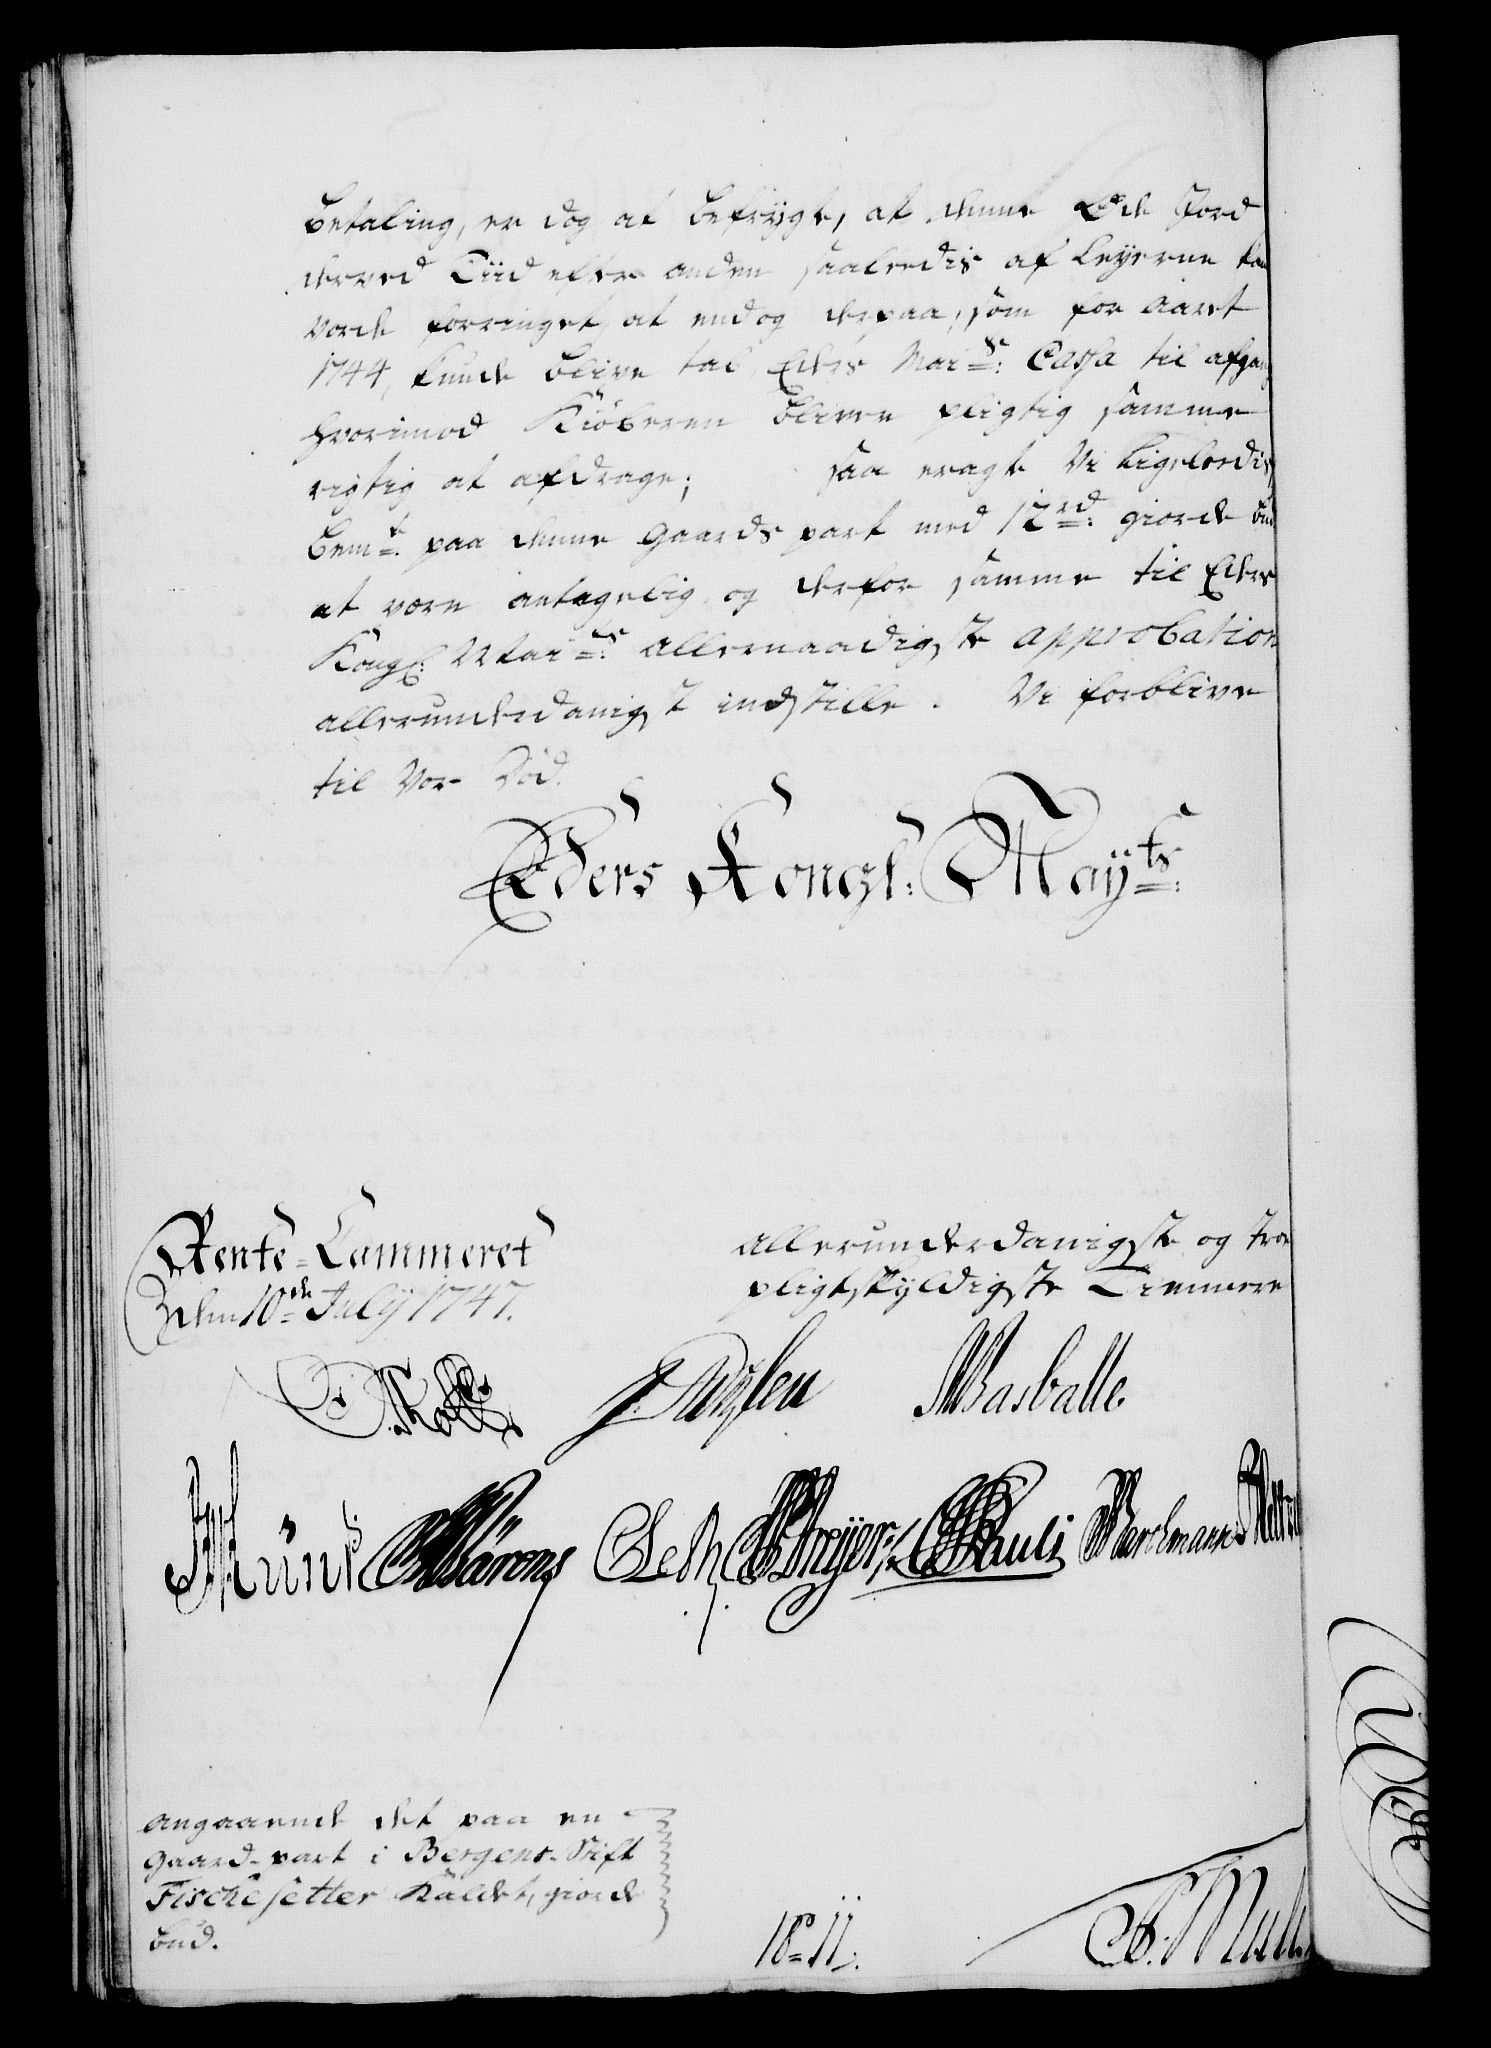 betaling, er dog at befrygte, at denne Öde Jord
derved Tiid efter anden saaledis af Leyerne kan
vorde forringet, at endog derpaa, som for Aaret
1744, kunde blive tab, Eders Mai:ts Cassa til afgang
hvorimod Kiöberen bliver pligtig samme
rigtig at afdrage; saa eragte Vi ligeledis,
bem:te paa denne Gaards part med 12 rd: giorde bud
at være antagelig og derfor samme til Eders
Kongl: Mai:ts allernaadigste approbation
allerunderdanigst indstille. Vi forblive
til Vor Död.
Eders Kongl: Mayts:
Rente-Cammeret
den 10de July 1747.
allerunderdanigste og troe
pligtskyldigste Tiennere
Holst
Wasballe
Pauli
angaaende det paa en
Gaard-part i Bergens-Stift
Fischesetter kaldet, giorde
bud.